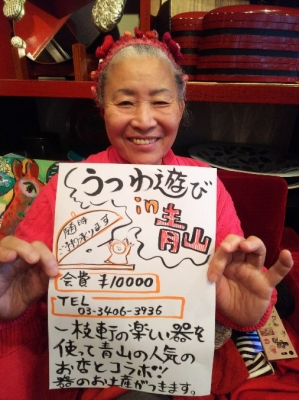 うつわ遊び
in青山
随時
承ります
会費 ¥10000
TEL
03-3406-3936
一枝軒の楽しい器を
使って青山の人気の
お店とコラボ!!
器のお土産がつきます。